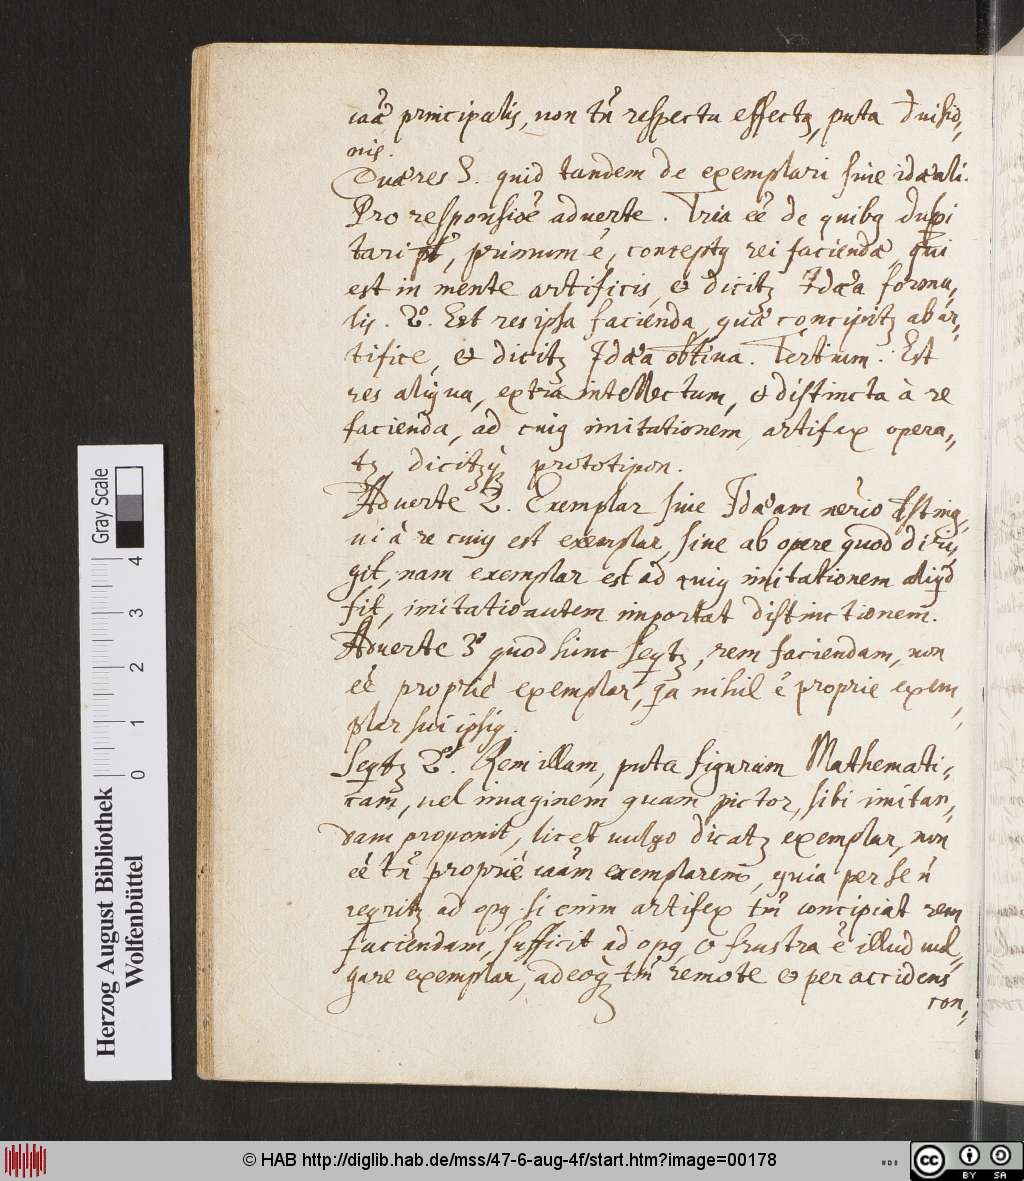 caã principalis, non tñ respectu effectq, puta divisio-
nis.
Quæres S. quid tandem de exemplari sive idæali.
Pro responsiõe adverte. Tria eẽ de quibq duspi
tari pt, primum ẽ, conceptq rei faciendæ, qui
est in mente artificis, et dicitz Idæa forma-
lis. 2º. Est res ipsa facienda, quæ concipitz ab ar-
tifice, et dicitz Idæa obtiva. Tertium. Est
res aliqua, extra intellectum, et distincta à re
facienda, ad cuiq imitationem, artifex opera-
tz, dicitzq prototipon.
Adverte 2. Exemplar sive Idæam nerio disting-
ui à re cuiq est exemplar, sive ab opere quod diri-
git, nam exemplar est ad cuiq imitationem aliqd
fit, imitatio autem importat distinctionem.
Adverte 3º quod hinc seqtz, rem faciendam, non
eẽ propriè exemplar, qa nihil ẽ proprie exem-
plar sui ipsiq.
Seqtz 2º. Rem illam, puta figuram Mathemati-
cam, vel imaginem quam pictor, sibi imitan-
dam proponit, licet vulgo dicatz exemplar, non
eẽ tñ propriè caãm exemplarem, quia per se ñ
reqritz ad opq. si enim artifex tm concipiat rem
faciendam, sufficit ad opq, et frustra ẽ illud vul-
gare exemplar, adeoq tm remote et per accidens
con-
Gray Scale
4
3
2
1
0
Herzog August Bibliothek
Wolfenbüttel
© HAB http://diglib.hab.de/mss/47-6-aug-4f/start.htm?image=00178
cc BY SA